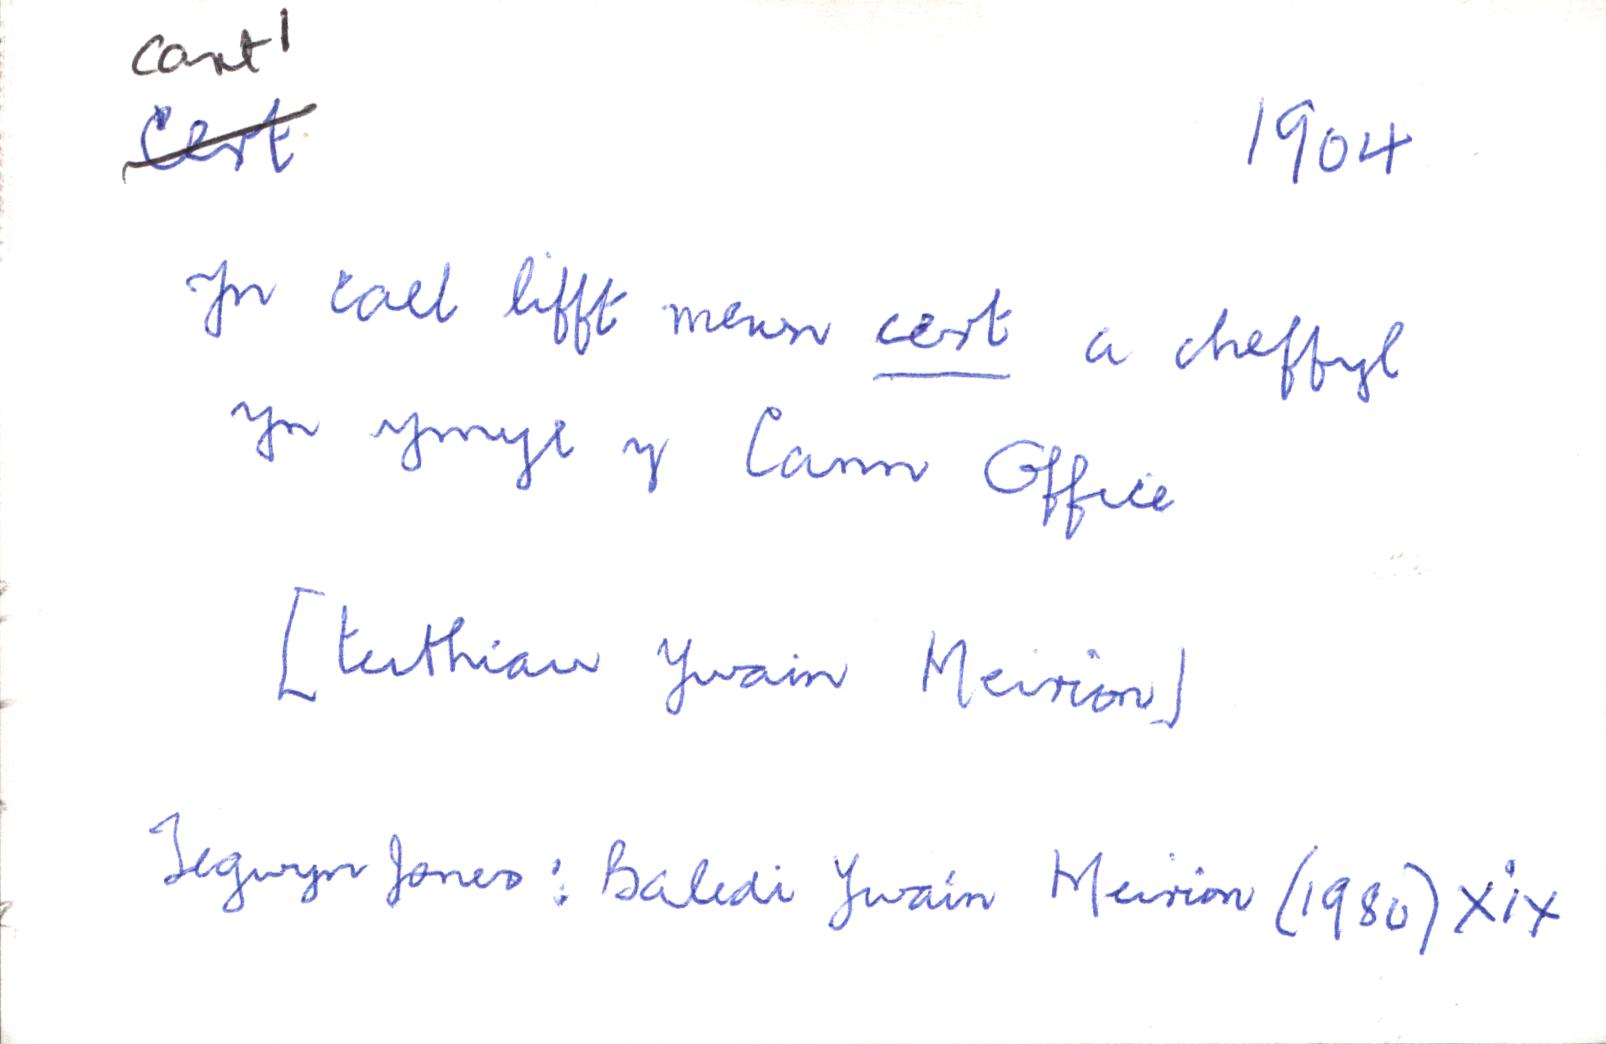 cart¹
cert
1904
Yn cael lifft mewn cert a cheffyl
yn ymyl y Cann Office
[teithiau Ywain Meirion]
Tegwyn Jones: Baledi Ywain Meirion (1980) xix